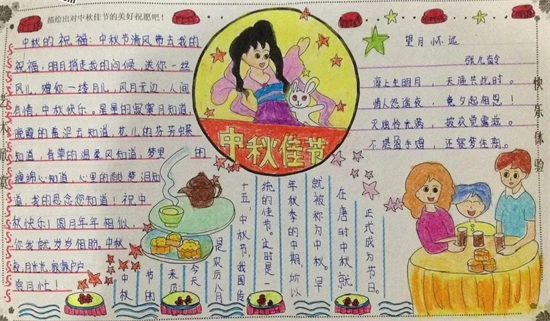 描绘出对中秋佳节的美好祝愿吧！
中秋的祝福：中秋节清风带去我的
祝福，明月捎走我的问候，送你一丝
风儿，赠你一缕月儿，风月无边，人间
有情，中秋快乐。星星的寂寞月知道
晚霞的羞涩云知道，花儿的芬芳蝶
知道，青草的温柔风知道，梦里 的
缠绵心知道，心里的 泪知
道，我的思念您知道！祝中
秋快乐！圆月年年相似
你我就岁岁相盼。中秋
赏月忙！
艺术欣赏
中秋佳节
望月怀远
张九龄
海上生明月，天涯共此时。
情人怨遥夜，竟夕起相思！
灭烛怜光满，披衣觉露滋。
不堪盈手赠，还寝梦佳期。
快乐体验
中秋
节的
来历
今天
是农历八月
十五，中秋节，我国传
统的佳节。这时是一
年秋季的中期，所以
就被称为中秋。早
在唐时中秋就
正式成为节日。